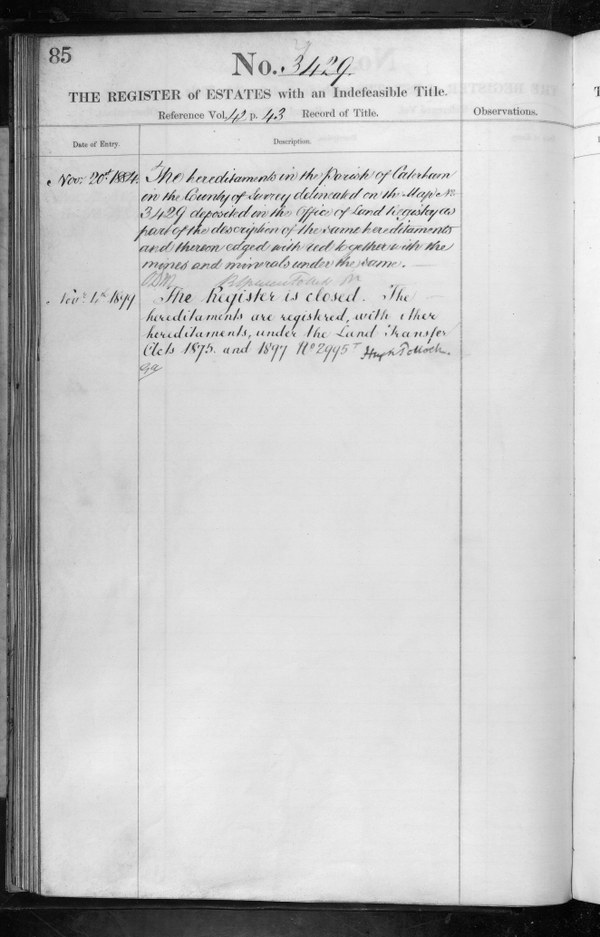 85
No. 3429.
THE REGISTER of ESTATES with an Indefeasible Title.
Reference Vol. p. 43 Record of Title.
Observations.
Date of Entry.
Description.
Nov. 20th 1884. The hereditaments in the Parish of Caterham
in the County of Surrey delineated on the Map No.
3429 deposited in the Office of Land Registry as
part of the description of the same hereditaments
and thereon edged with red together with the
mines and minerals under the same.
1899 The Register is closed. The
hereditaments are registered, with other
hereditaments, under the Land Transfer
Acts 1875. and 1897 No 2995 Hugh Pollock.